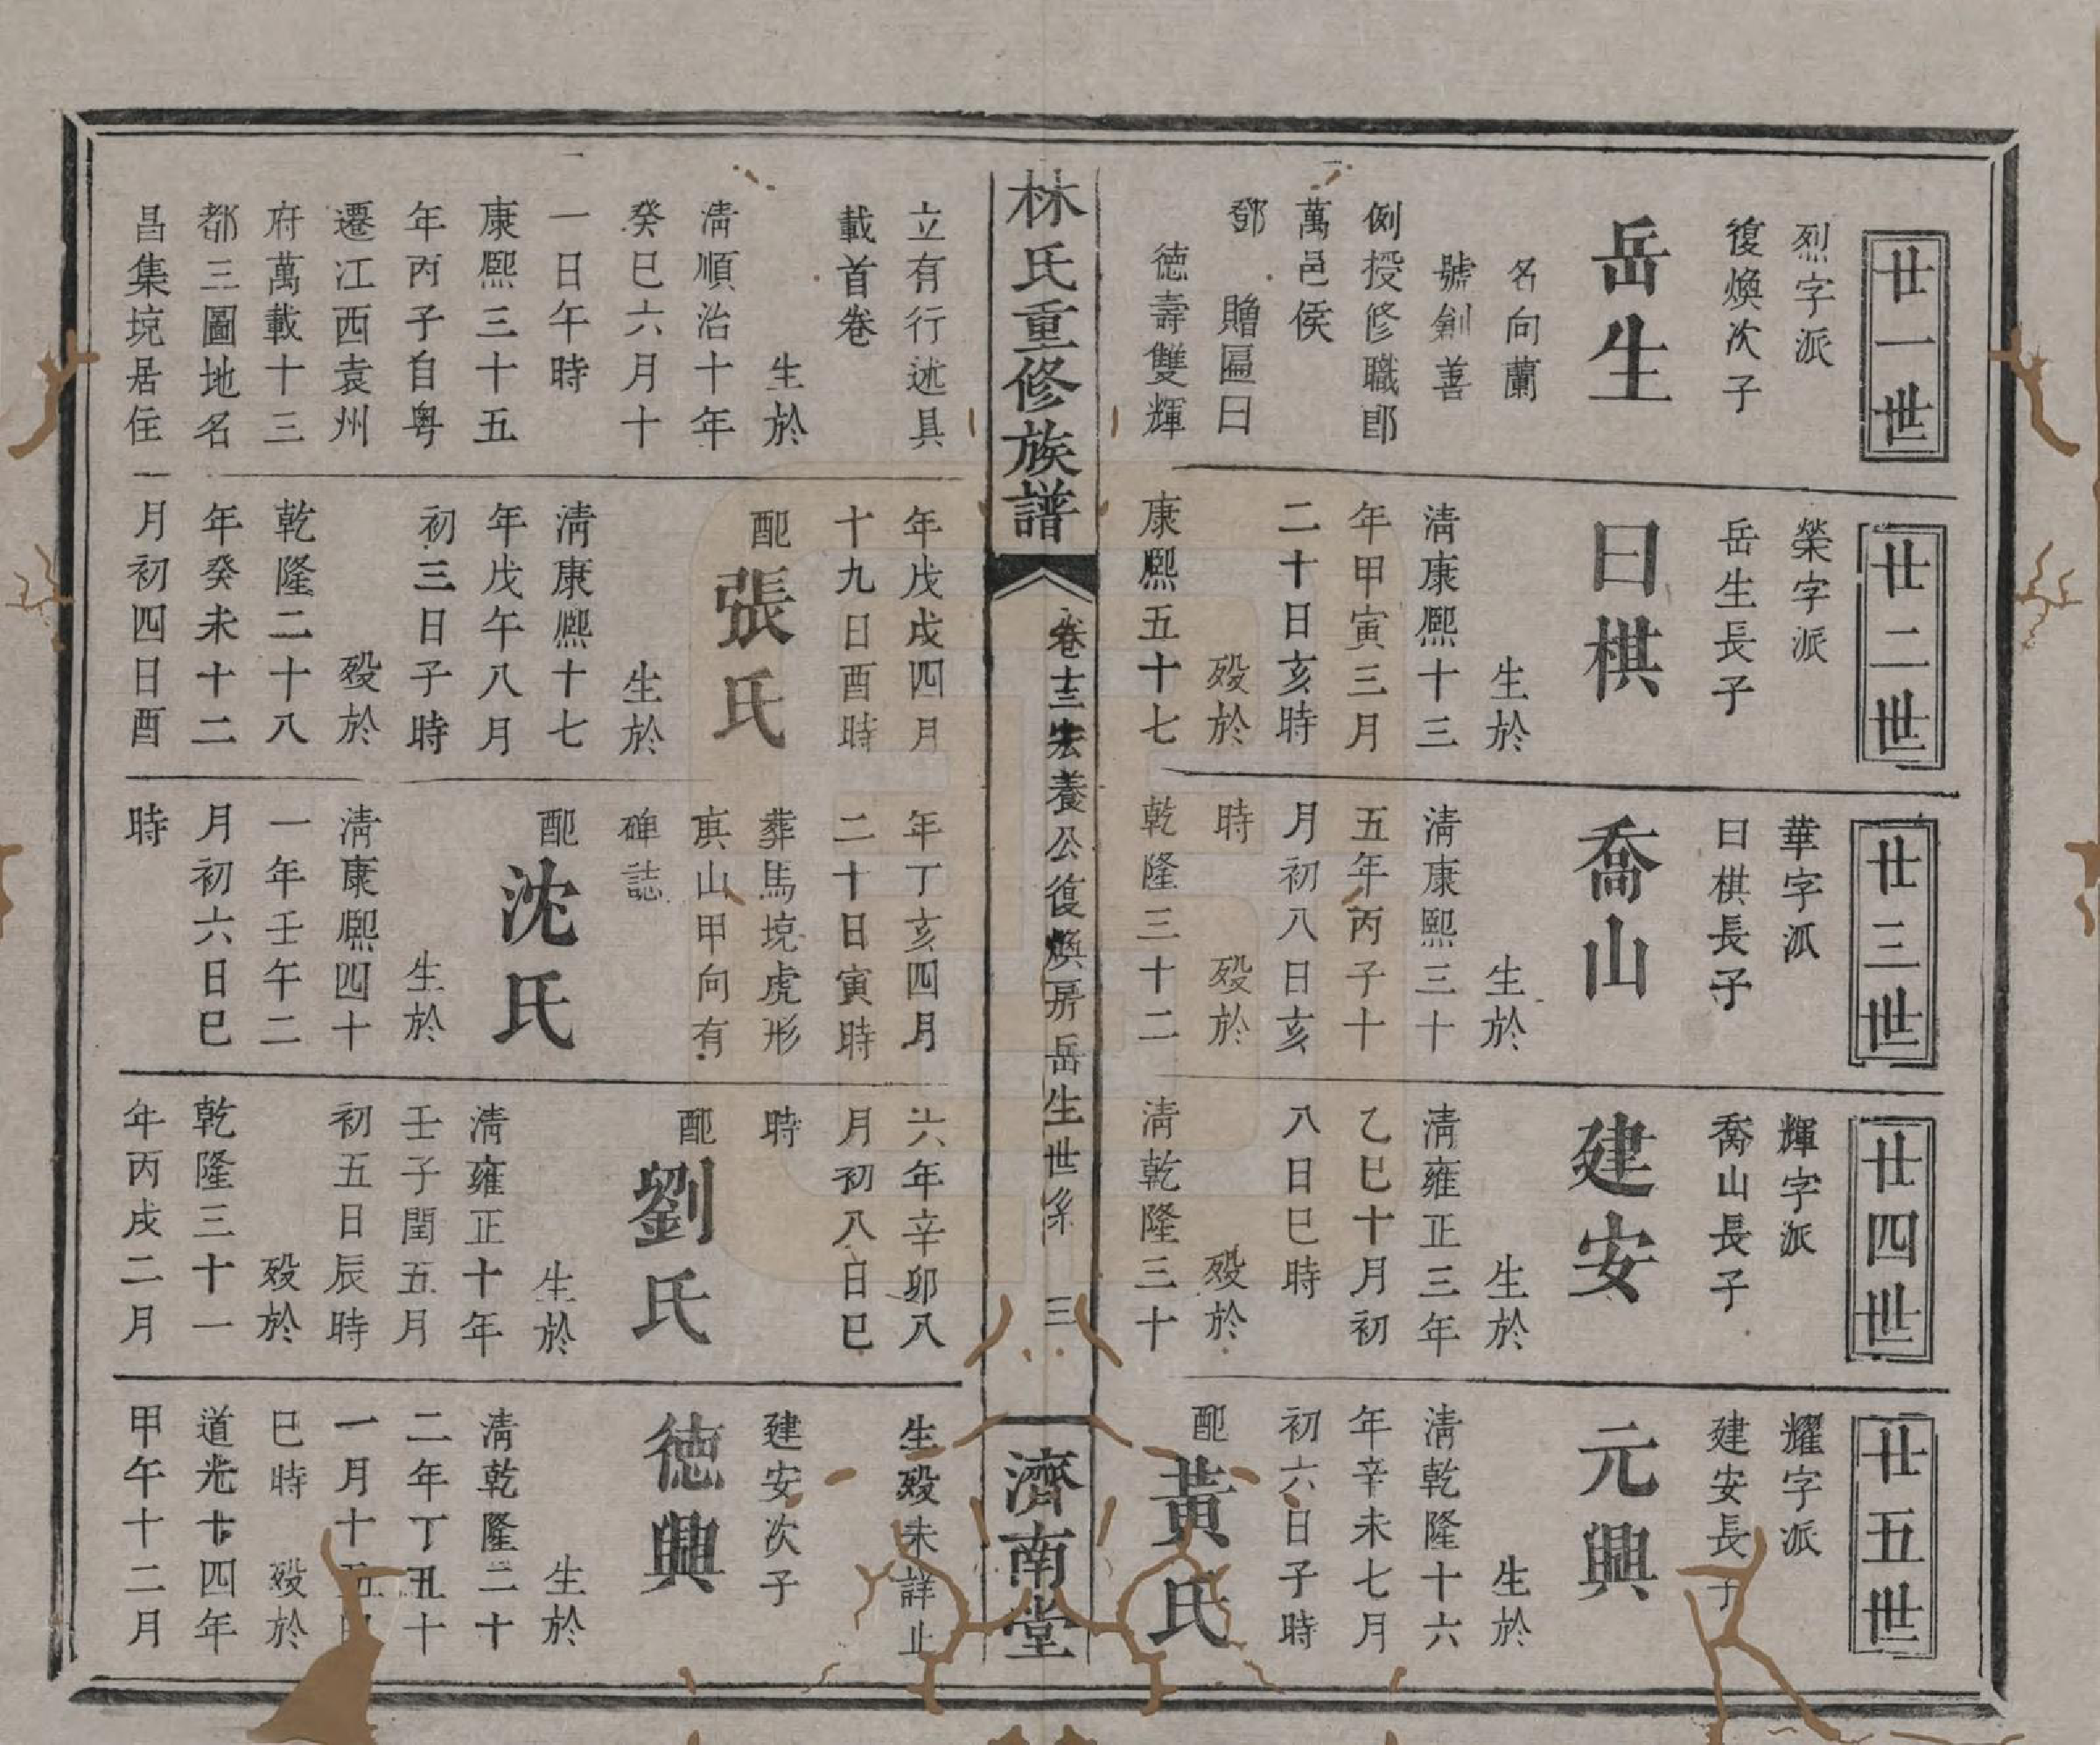 廿一世
烈字派
復煥次子
岳生
名向蘭
號創善
例授修職郎
萬邑侯
鄧 贈匾曰
德壽雙輝
廿二世
榮字派
岳生長子
曰棋
生於
清康熙十三
年甲寅三月
二十日亥時
殁於
康熙五十七
廿三世
華字派
曰棋長子
喬山
生於
清康熙三十
五年丙子十
月初八日亥
時 殁於
乾隆三十二
廿四世
輝字派
喬山長子
建安
生於
清雍正三年
乙巳十月初
八日巳時
殁於
清乾隆三十
廿五世
耀字派
建安長子
元興
生於
清乾隆十六
年辛未七月
初六日子時
配黃氏
林氏重修族譜
卷十三宏養公復煥房岳生世系 三
濟南堂
立有行述具
載首卷
生於
清順治十年
癸巳六月十
一日午時
康熙三十五
年丙子自粵
遷江西袁州
府萬載十三
都三圖地名
昌集境居住
年戊戌四月
十九日酉時
配張氏
生於
清康熙十七
年戊午八月
初三日子時
殁於
乾隆二十八
年癸未十二
月初四日酉
年丁亥四月
二十日寅時
葬馬境虎形
寅山甲向有
碑誌
配沈氏
生於
清康熙四十
一年壬午二
月初六日巳
時
六年辛卯八
月初八日巳
時
配劉氏
生於
清雍正十年
壬子閏五月
初五日辰時
殁於
乾隆三十一
年丙戌二月
生殁未詳止
建安次子
德興
生於
清乾隆二十
二年丁丑十
一月十五日
巳時 殁於
道光十四年
甲午十二月